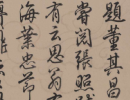 題董其昌
嘗閱張照
有云思翁
海業忠節